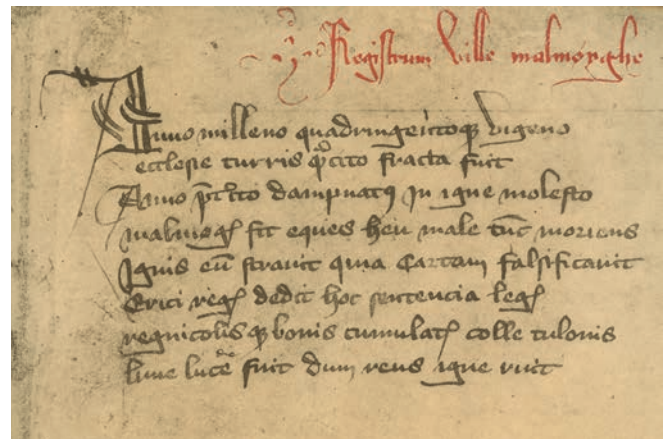 Registrum ville malmoyghe
Anno milleno quadringentoqꝫ vigeno
ecclesie turris fracta fuit
Anno dampnatꝰ in igne molesto
malmogꝭ fit eques heu male tūc moriens
Ignis eū strauit quia Cartam falsificauit
Erici regꝭ dedit hoc sentencia legꝭ
regnicolis qꝫ bonis cumulatꝭ colle tulonis
fuit dum reus igne ruit